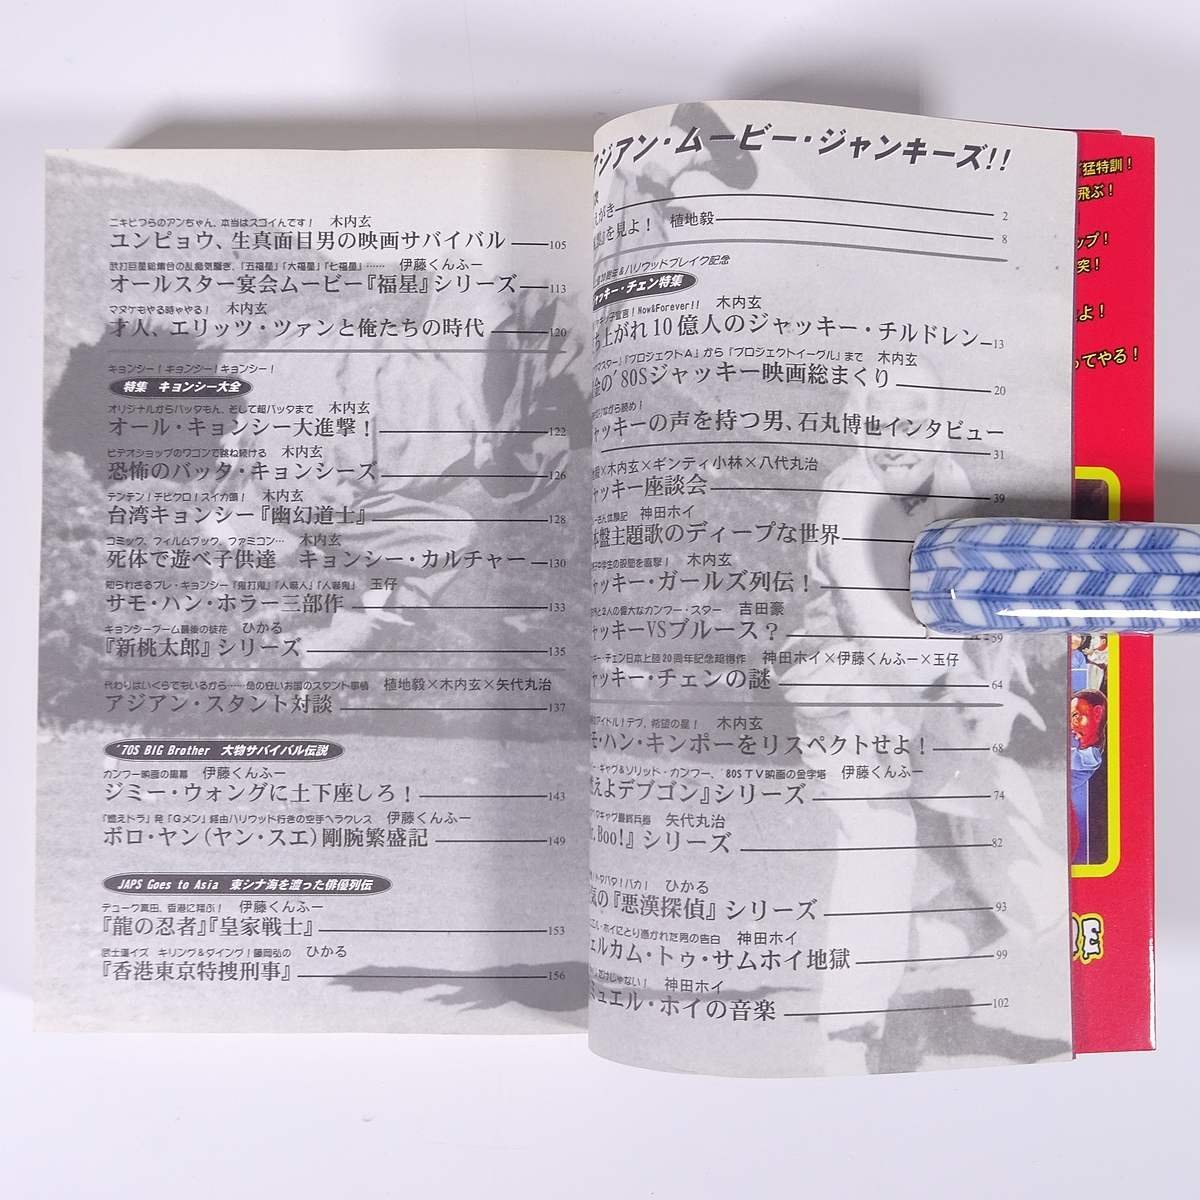 アジアン・ムービー・ジャンキーズ!!
次
がき 2
を見よ! 植地毅 8
周年&ハリウッドブレイク記念
ッキー・チェン特集
宣言!Now&Forever!! 木内玄
ち上がれ10億人のジャッキー・チルドレン 13
マスター』『プロジェクトA』から『プロジェクトイーグル』まで 木内玄
金の'80Sジャッキー映画総まくり 20
ながら読め!
ャッキーの声を持つ男、石丸博也インタビュー 31
毅×木内玄×ギンティ小林×八代丸治
ャッキー座談会 39
体験記 神田ホイ
本盤主題歌のディープな世界
中学生の股間を直撃! 木内玄
ャッキー・ガールズ列伝!
2人の偉大なカンフー・スター 吉田豪
ャッキーVSブルース? 59
キー・チェン日本上陸20周年記念超爆作 神田ホイ×伊藤くんふー×玉仔
ャッキー・チェンの謎 64
アイドル!デブ、希望の星! 木内玄
モ・ハン・キンポーをリスペクトせよ! 68
ー・ギャグ&ソリッド・カンフー、'80STV映画の金字塔 伊藤くんふー
燃えよデブゴン』シリーズ 74
ギャグ最終兵器 矢代丸治
r. Boo!』シリーズ 82
!トタバタ!バカ! ひかる
気の『悪漢探偵』シリーズ 93
エル・ホイにとり憑かれた男の告白 神田ホイ
ェルカム・トゥ・サムホイ地獄 99
だけじゃない! 神田ホイ
ミュエル・ホイの音楽 102
ニキビづらのアンちゃん、本当はスゴイんです! 木内玄
ユンピョウ、生真面目男の映画サバイバル 105
武打巨星総集合の乱痴気騒ぎ、「五福星」「大福星」「七福星」…… 伊藤くんふー
オールスター宴会ムービー『福星』シリーズ 113
マヌケもやる時ゃやる! 木内玄
才人、エリッツ・ツァンと俺たちの時代 120
キョンシー!キョンシー!キョンシー!
特集 キョンシー大全
オリジナルからバッタもん、そして超バッタまで 木内玄
オール・キョンシー大進撃! 122
ビデオショップのワゴンで跳ね続ける 木内玄
恐怖のバッタ・キョンシーズ 126
テンテン!チビクロ!スイカ頭! 木内玄
台湾キョンシー『幽幻道士』 128
コミック、フィルムブック、ファミコン… 木内玄
死体で遊べ子供達 キョンシー・カルチャー 130
知られざるプレ・キョンシー『鬼打鬼』『人嚇人』『人嚇鬼』 玉仔
サモ・ハン・ホラー三部作 133
キョンシーブーム最後の徒花 ひかる
『新桃太郎』シリーズ 135
代わりはいくらでもいるから……命の安いお国のスタント事情 植地毅×木内玄×矢代丸治
アジアン・スタント対談 137
'70S BIG Brother 大物サバイバル伝説
カンフー映画の黒幕 伊藤くんふー
ジミー・ウォングに土下座しろ! 143
『燃えドラ』発『Gメン』経由ハリウッド行きの空手ヘラクレス 伊藤くんふー
ボロ・ヤン(ヤン・スエ)剛腕繁盛記 149
JAPS Goes to Asia 東シナ海を渡った俳優列伝
デューク真田、香港に翔ぶ! 伊藤くんふー
『龍の忍者』『皇家戦士』 153
武士道イズ キリング&ダイング!藤岡弘の ひかる
『香港東京特捜刑事』 156
猛特訓!
飛ぶ!
ップ!
突!
よ!
ってやる!